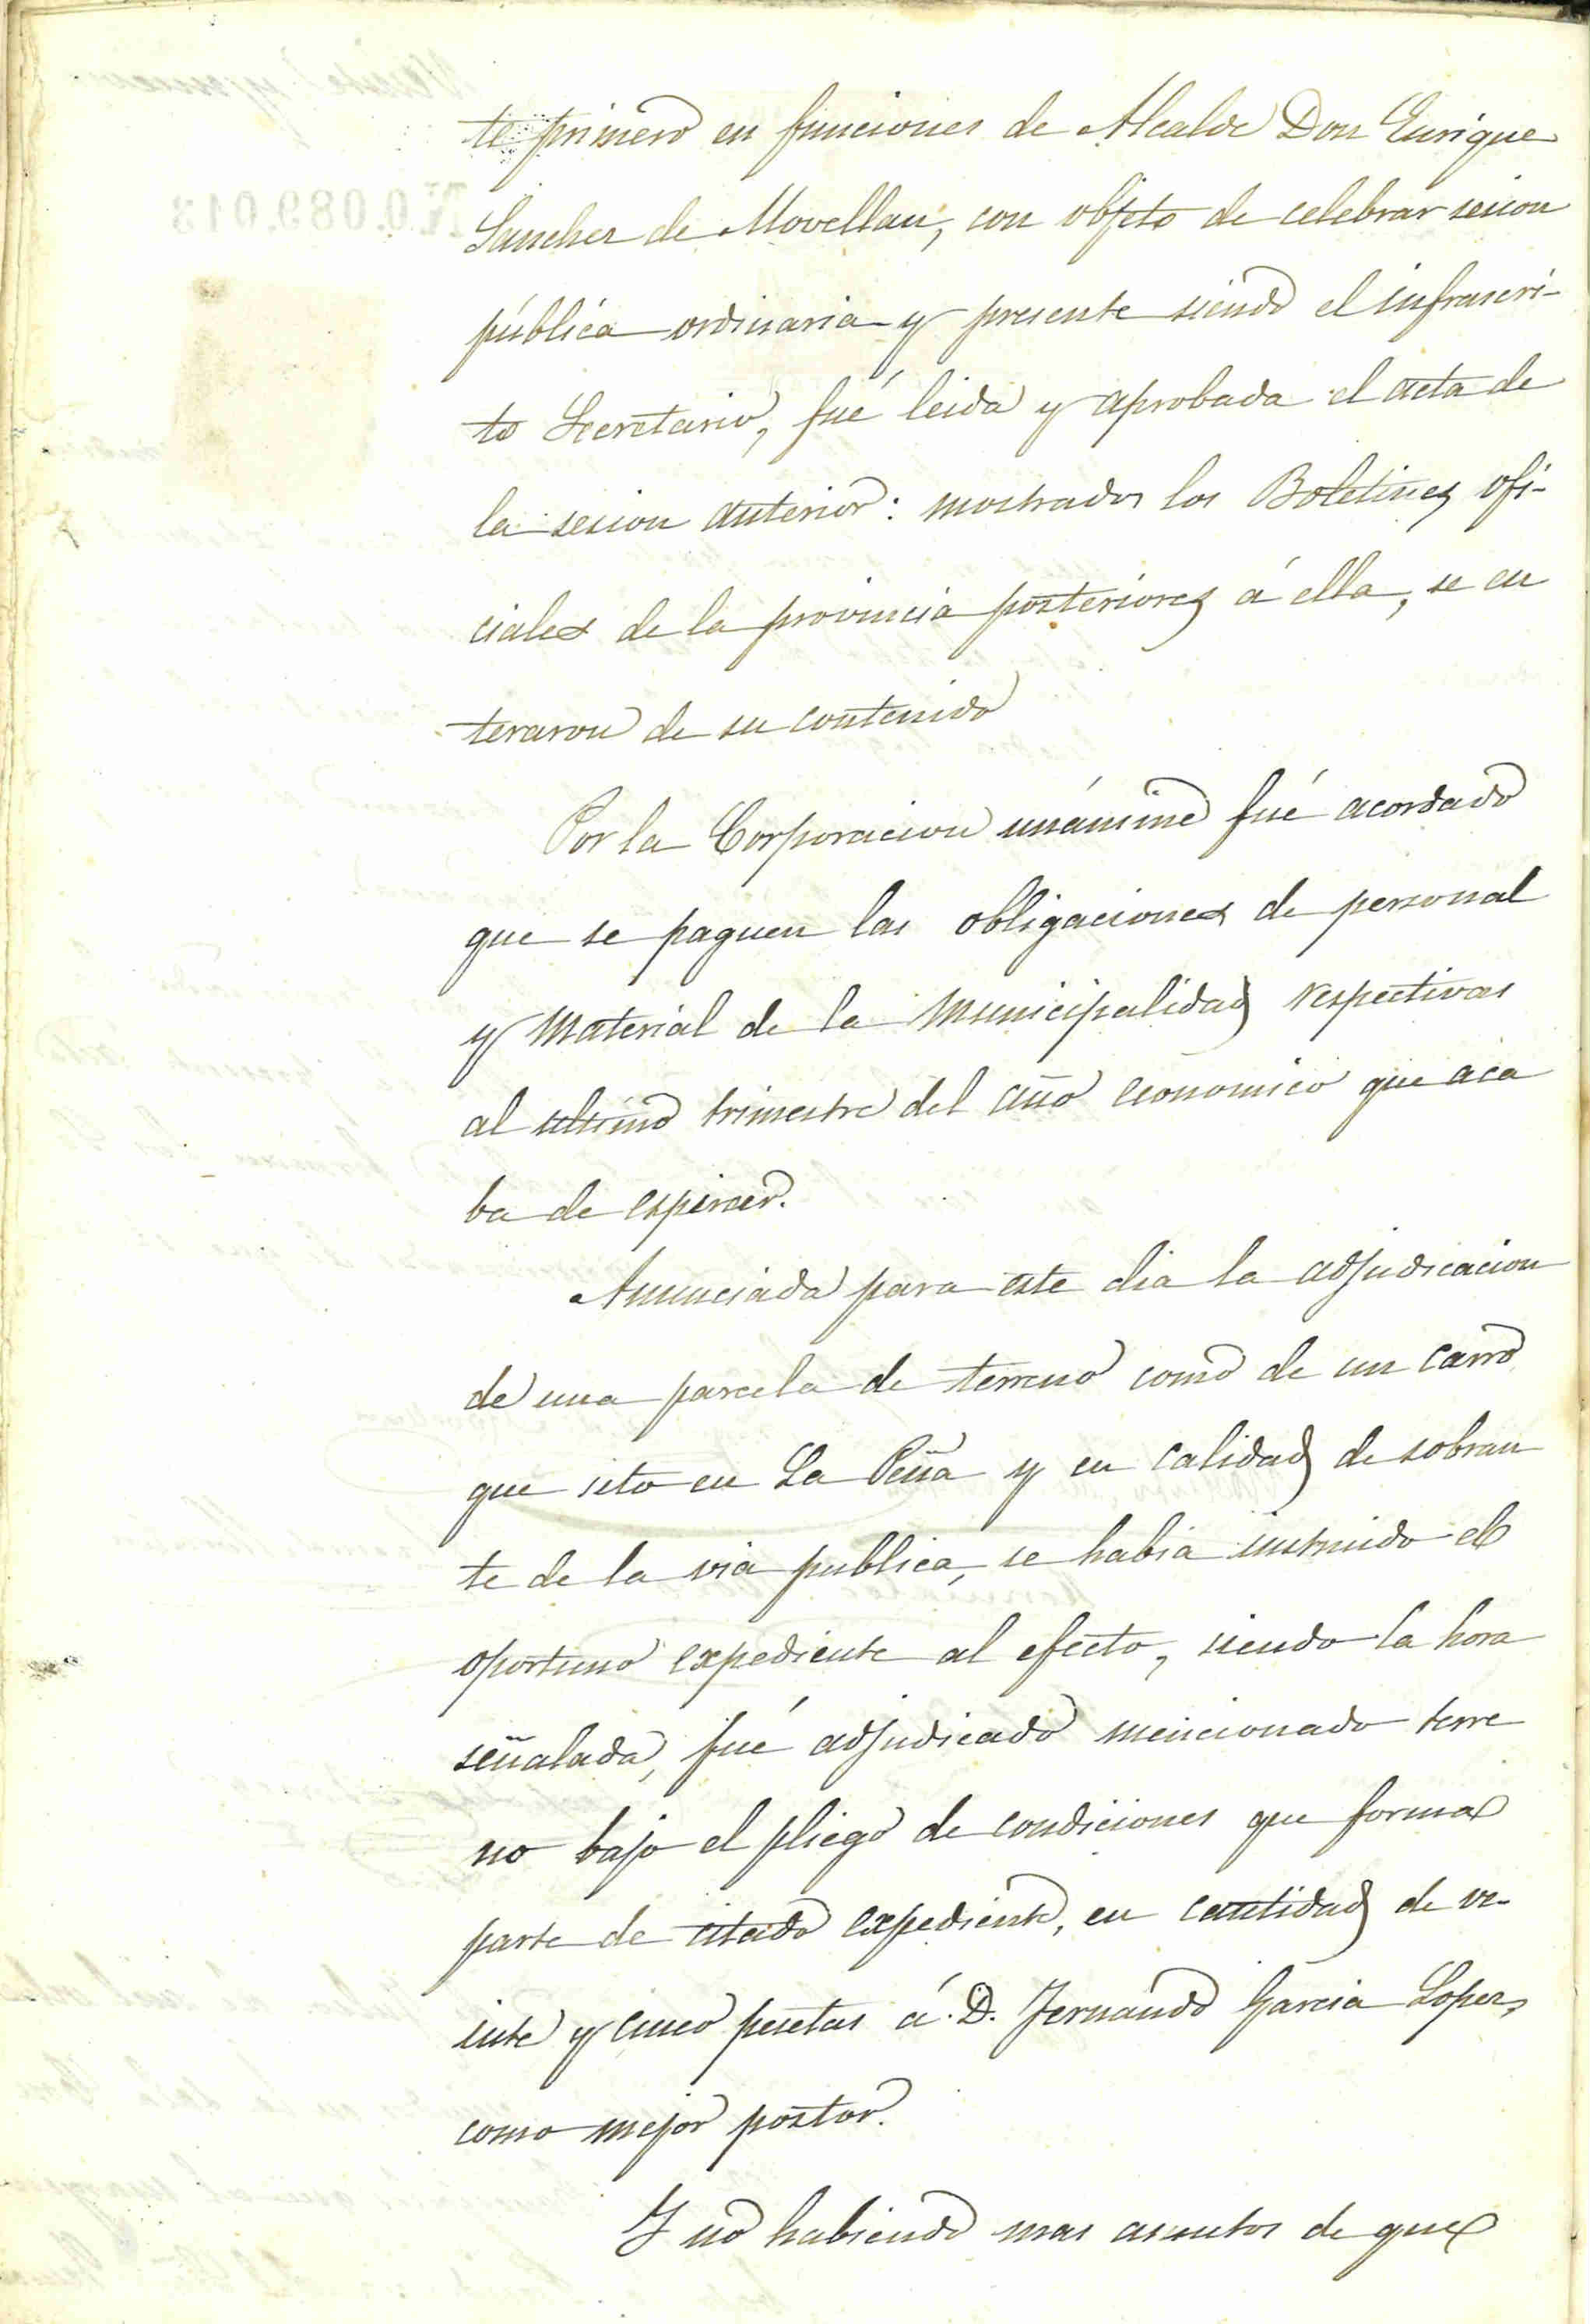 te primero en funciones de Alcalde Don Enrique
Sanchez de Movellan, con objeto de celebrar sesion
pública ordinaria y presente siendo el infrascri-
to Secretario, fué leida y aprobada el acta de
la sesion anterior: mostrados los Boletines ofi-
ciales de la provincia posteriores á ella, se en
teraron de su contenido
Por la Corporacion unánime fué acordado
que se paguen las obligaciones de personal
y material de la Municipalidad respectivas
al ultimo trimestre del año economico que aca
ba de espirar.
Anunciada para este dia la adjudicacion
de una parcela de terreno como de un carro
que sito en La Peña y en calidad de sobran
te de la via publica, se habia instruido el
oportuno expediente al efecto, siendo la hora
señalada, fué adjudicado mencionado terre
no bajo el pliego de condiciones que forma
parte de citado expediente, en cantidad de ve-
inte y cinco pesetas á D. Fernando Garcia Lopez,
como mejor postor.
Y no habiendo mas asuntos de que
N.0.089.013